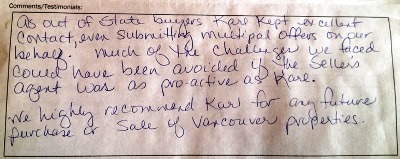 Comments/Testimonials:
As out of State buyers Karl Kept excellent
Contact, even submitting multipal offers on our
behalf. Much of the challenges we faced
Could have been avoided if the Seller's
agent was as pro-active as Karl.
We highly recommend Karl for any future
purchase or Sale of Vancouver properties.